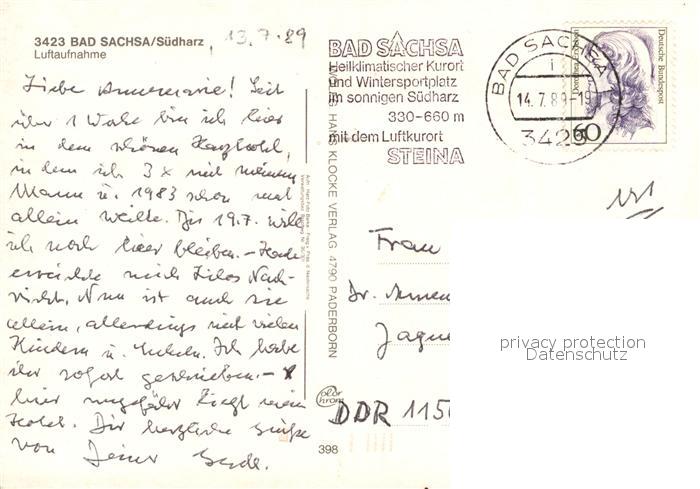 3423 BAD SACHSA/Südharz
Luftaufnahme
13.7.89
Liebe Annemarie! Seit
über 1 Woche bin ich hier
in dem schönen Harzhotel,
in dem ich 3 x mit meinem
Mann u. 1983 schon mal
allein weilte. Bis 19.7. will
ich noch hier bleiben. – Heute
erreichte mich Nach-
richt. Nun ist auch sie
allein, allerdings mit vielen
Kindern u. Enkeln. Ich habe
ihr sofort geschrieben. – x
hier ungefähr liegt mein
Hotel. Dir herzliche Grüße
von Deiner
BAD SACHSA
Heilklimatischer Kurort
und Wintersportplatz
im sonnigen Südharz
330-660 m
mit dem Luftkurort
STEINA
BAD SACHSA
14.7.89-19
3423
Deutsche Bundespost
60
HANS KLOCKE VERLAG 4790 PADERBORN
Frau
Dr. Annem
Jaque
DDR 1150
color
chrom
398
privacy protection
Datenschutz